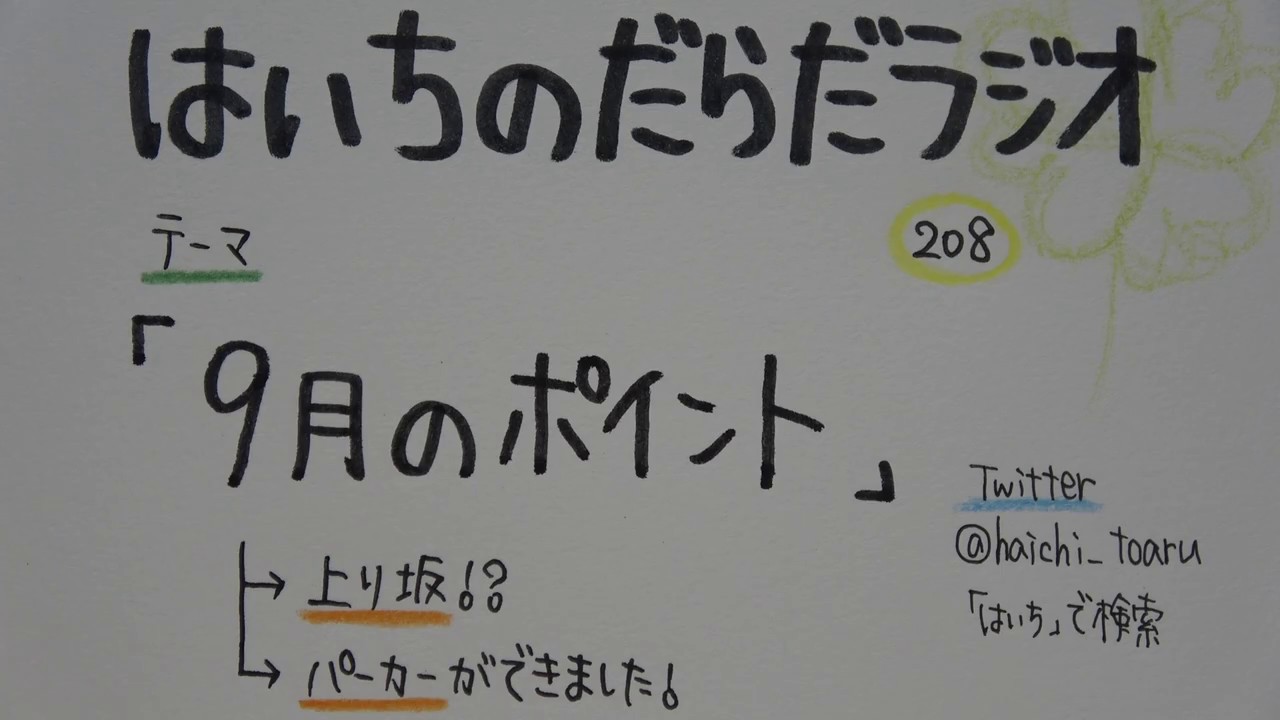 はいちのだらだラジオ
テーマ
208
「9月のポイント」
上り坂!?
パーカーができました!
Twitter
@haichi_toaru
「はいち」で検索